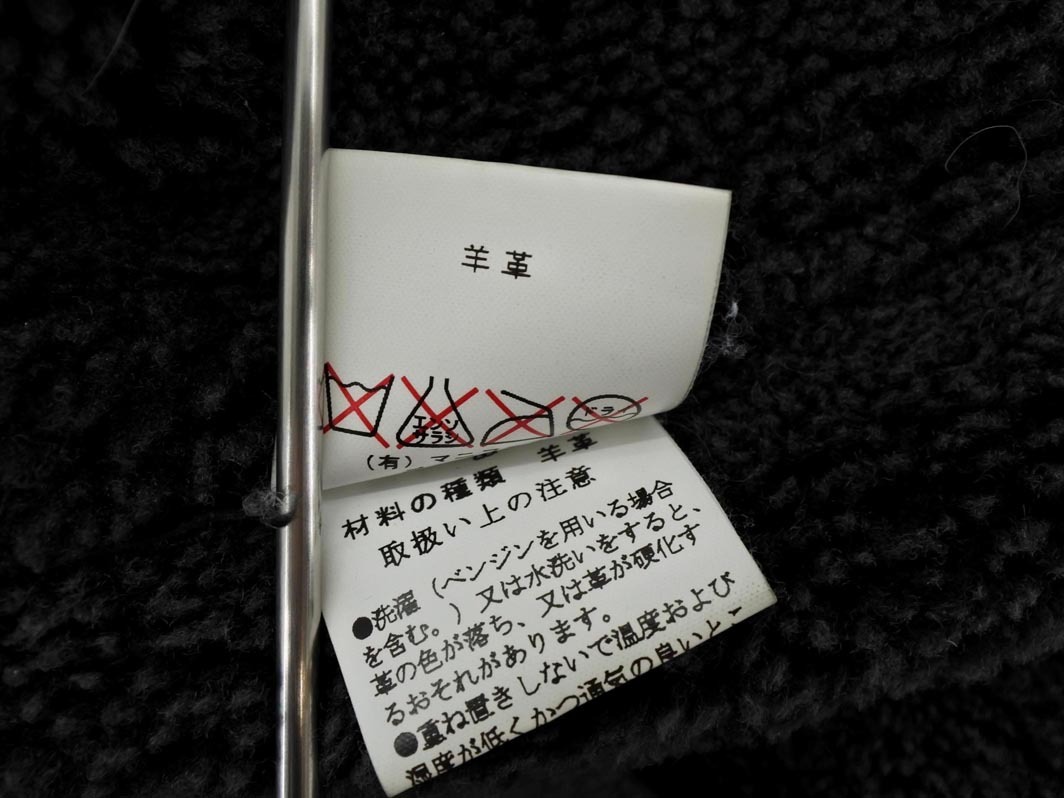 羊革
エンソ
サラシ
ドライ
(有)マ
材料の種類 羊革
取扱い上の注意
●洗濯(ベンジンを用いる場合
を含む。)又は水洗いをすると、
革の色が落ち、又は革が硬化す
るおそれがあります。
●重ね置きしないで温度および
湿度が低くかつ通気の良いと